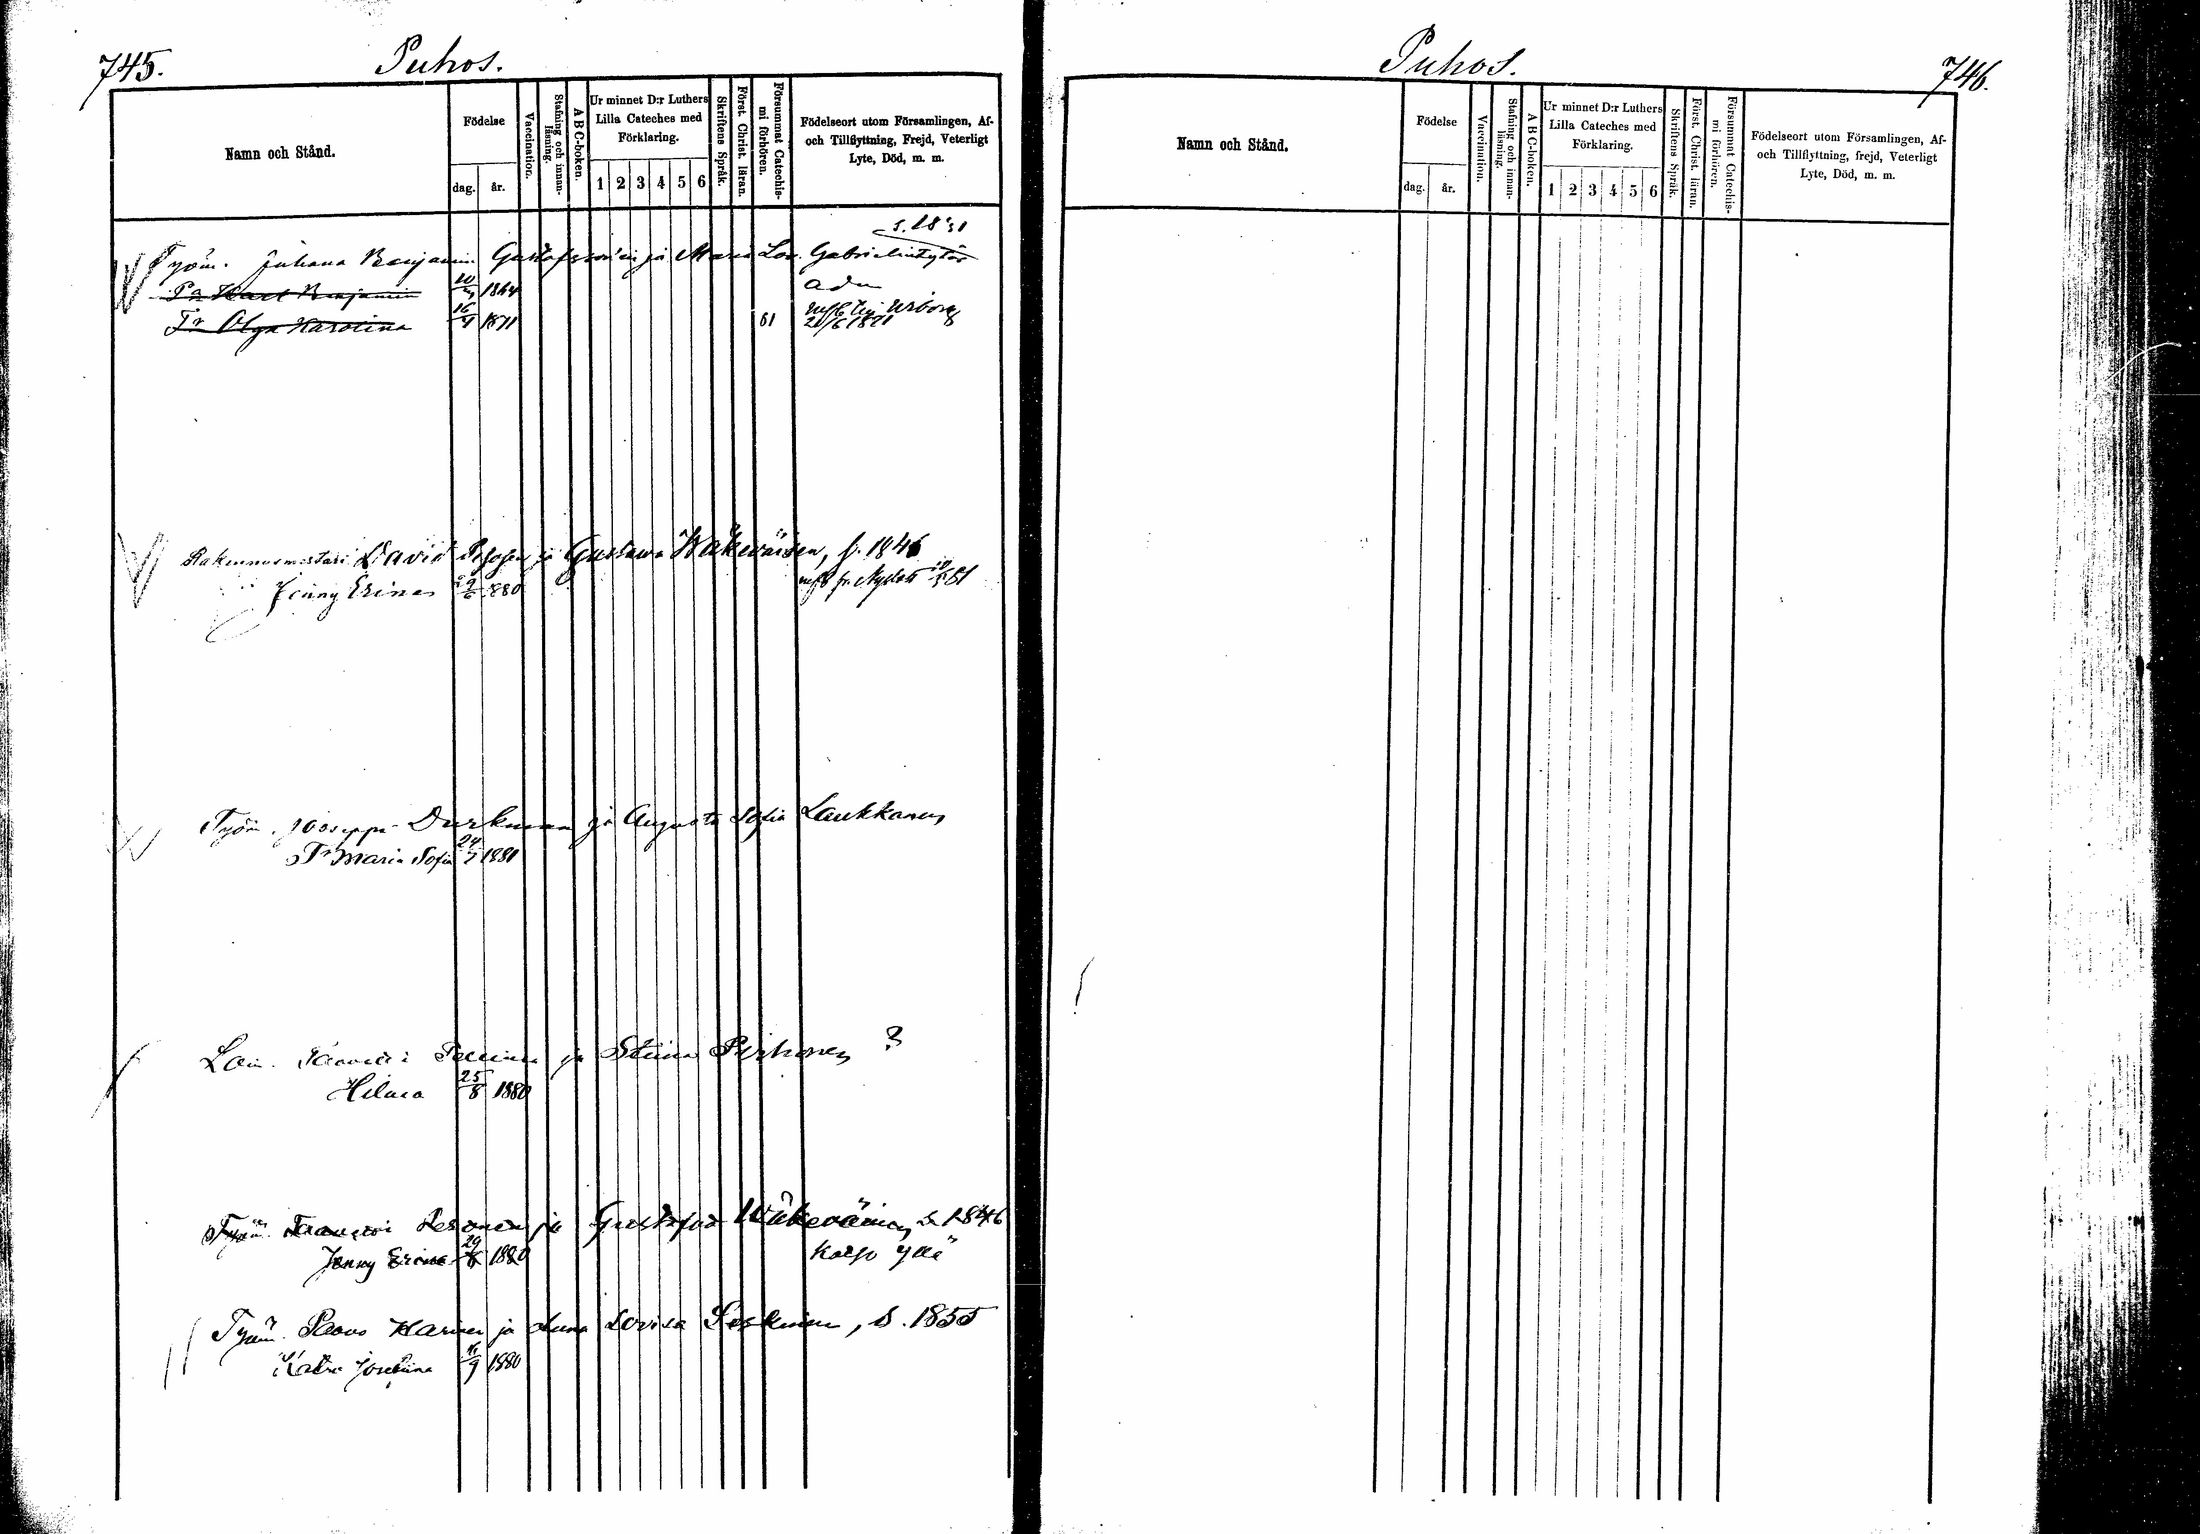 745.
Puhos.
Namn och Stånd.
Födelse
dag.
år.
Vaccination.
Stafning och innan-
läsning.
A B C-boken.
Ur minnet D:r Luthers
Lilla Cateches med
Förklaring.
1 2 3 4 5 6
Skriftens Språk.
Först. Christ. läran.
Försummat Catechis-
mi förhören.
Födelseort utom Församlingen, Af-
och Tillflyttning, Frejd, Veterligt
Lyte, Död, m. m.
Työm. Juhana Benjamin Gustafsson'in ja Maria Lov. Gabrielintytär
Pa Karl Benjamin 1864
Tr Olga Karolina 16/9 1871 81 20/6 1871
Rakennusmestari David ja Gustava Wäkeväinen, f. 1846
Jenny Erina 29/6 1880 fr. Nyslott 81
Työm. Jooseppi ja Augusta Sofia Laukkanen
Tr Maria Sofia 1881
Loin. ja Stiina ?
25/8 1880
Työm. ja Gustafva Wäkeväinen, s. 1846
Jenny Erina 29/6 1880 katso yllä
Työm. Paavo ja Anna Lovisa s. 1855
Josefiina 1880
Puhos.
746.
Namn och Stånd.
Födelse
dag.
år.
Vaccination.
Stafning och innan-
läsning.
A B C-boken.
Ur minnet D:r Luthers
Lilla Cateches med
Förklaring.
1 2 3 4 5 6
Skriftens Språk.
Först. Christ. läran.
Försummat Catechis-
mi förhören.
Födelseort utom Församlingen, Af-
och Tillflyttning, frejd, Veterligt
Lyte, Död, m. m.